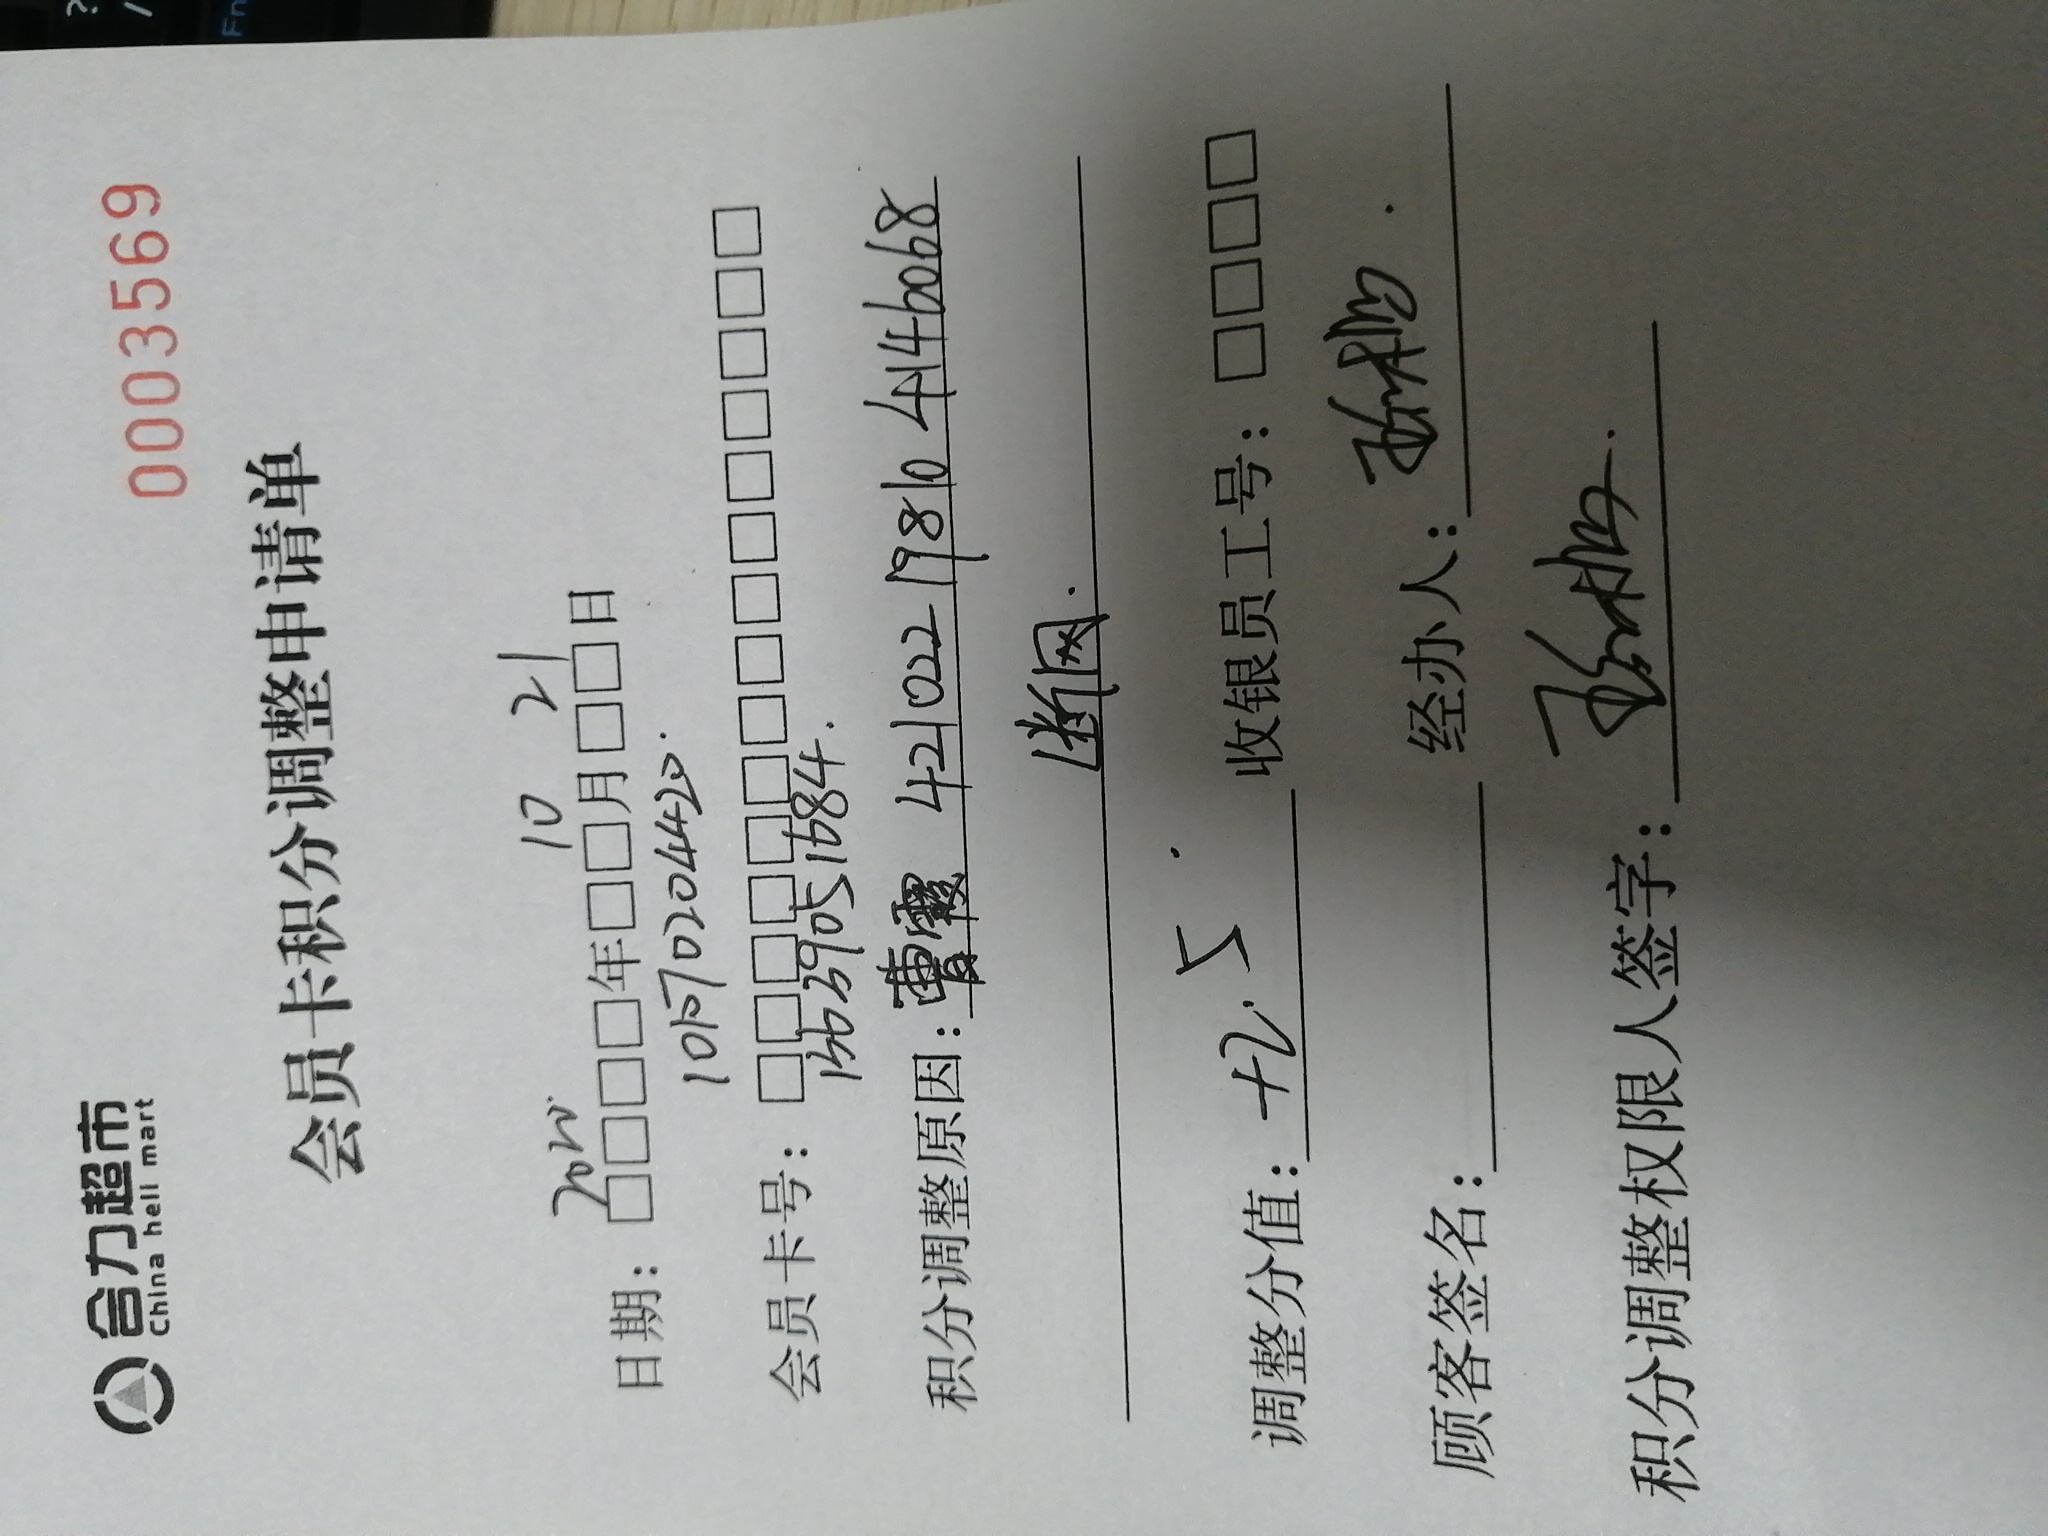 合力超市
China hell mart
0003569
会员卡积分调整申请单
2020 10 21
日期：□□□□年□□月□□日
10570204420.
会员卡号：□□□□□□□□□□□□□□□
13639051684.
积分调整原因：曹霞 421022 1981 0 4146068
断网.
调整分值：+2.5. 收银员工号：□□□□
顾客签名： 经办人：
积分调整权限人签字：